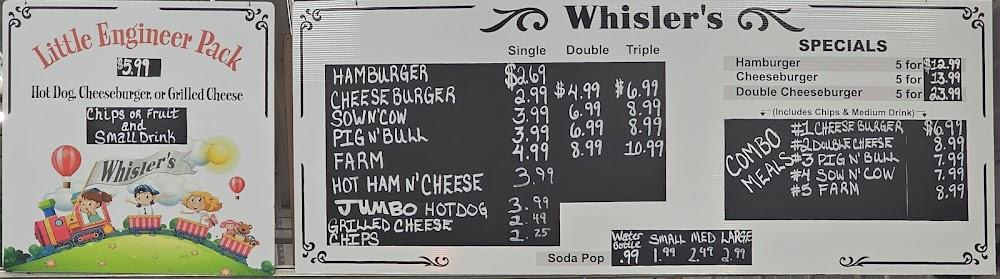 Little Engineer Pack
$5.99
Hot Dog, Cheeseburger, or Grilled Cheese
Chips or Fruit
and
Small Drink
Whisler's
Whisler's
Single Double Triple
HAMBURGER $2.69
CHEESEBURGER 2.99 $4.99 $6.99
SOW N' COW 3.99 6.99 8.99
PIG N' BULL 3.99 6.99 8.99
FARM 4.99 8.99 10.99
HOT HAM N' CHEESE 3.99
JUMBO HOTDOG 3.99
GRILLED CHEESE 2.49
CHIPS 1.25
Water Bottle SMALL MED LARGE
Soda Pop .99 1.99 2.49 2.99
SPECIALS
Hamburger 5 for $12.99
Cheeseburger 5 for 13.99
Double Cheeseburger 5 for 23.99
(Includes Chips & Medium Drink)
COMBO MEALS
#1 CHEESE BURGER $6.99
#2 DOUBLE CHEESE 8.99
#3 PIG N' BULL 7.99
#4 SOW N' COW 7.99
#5 FARM 8.99